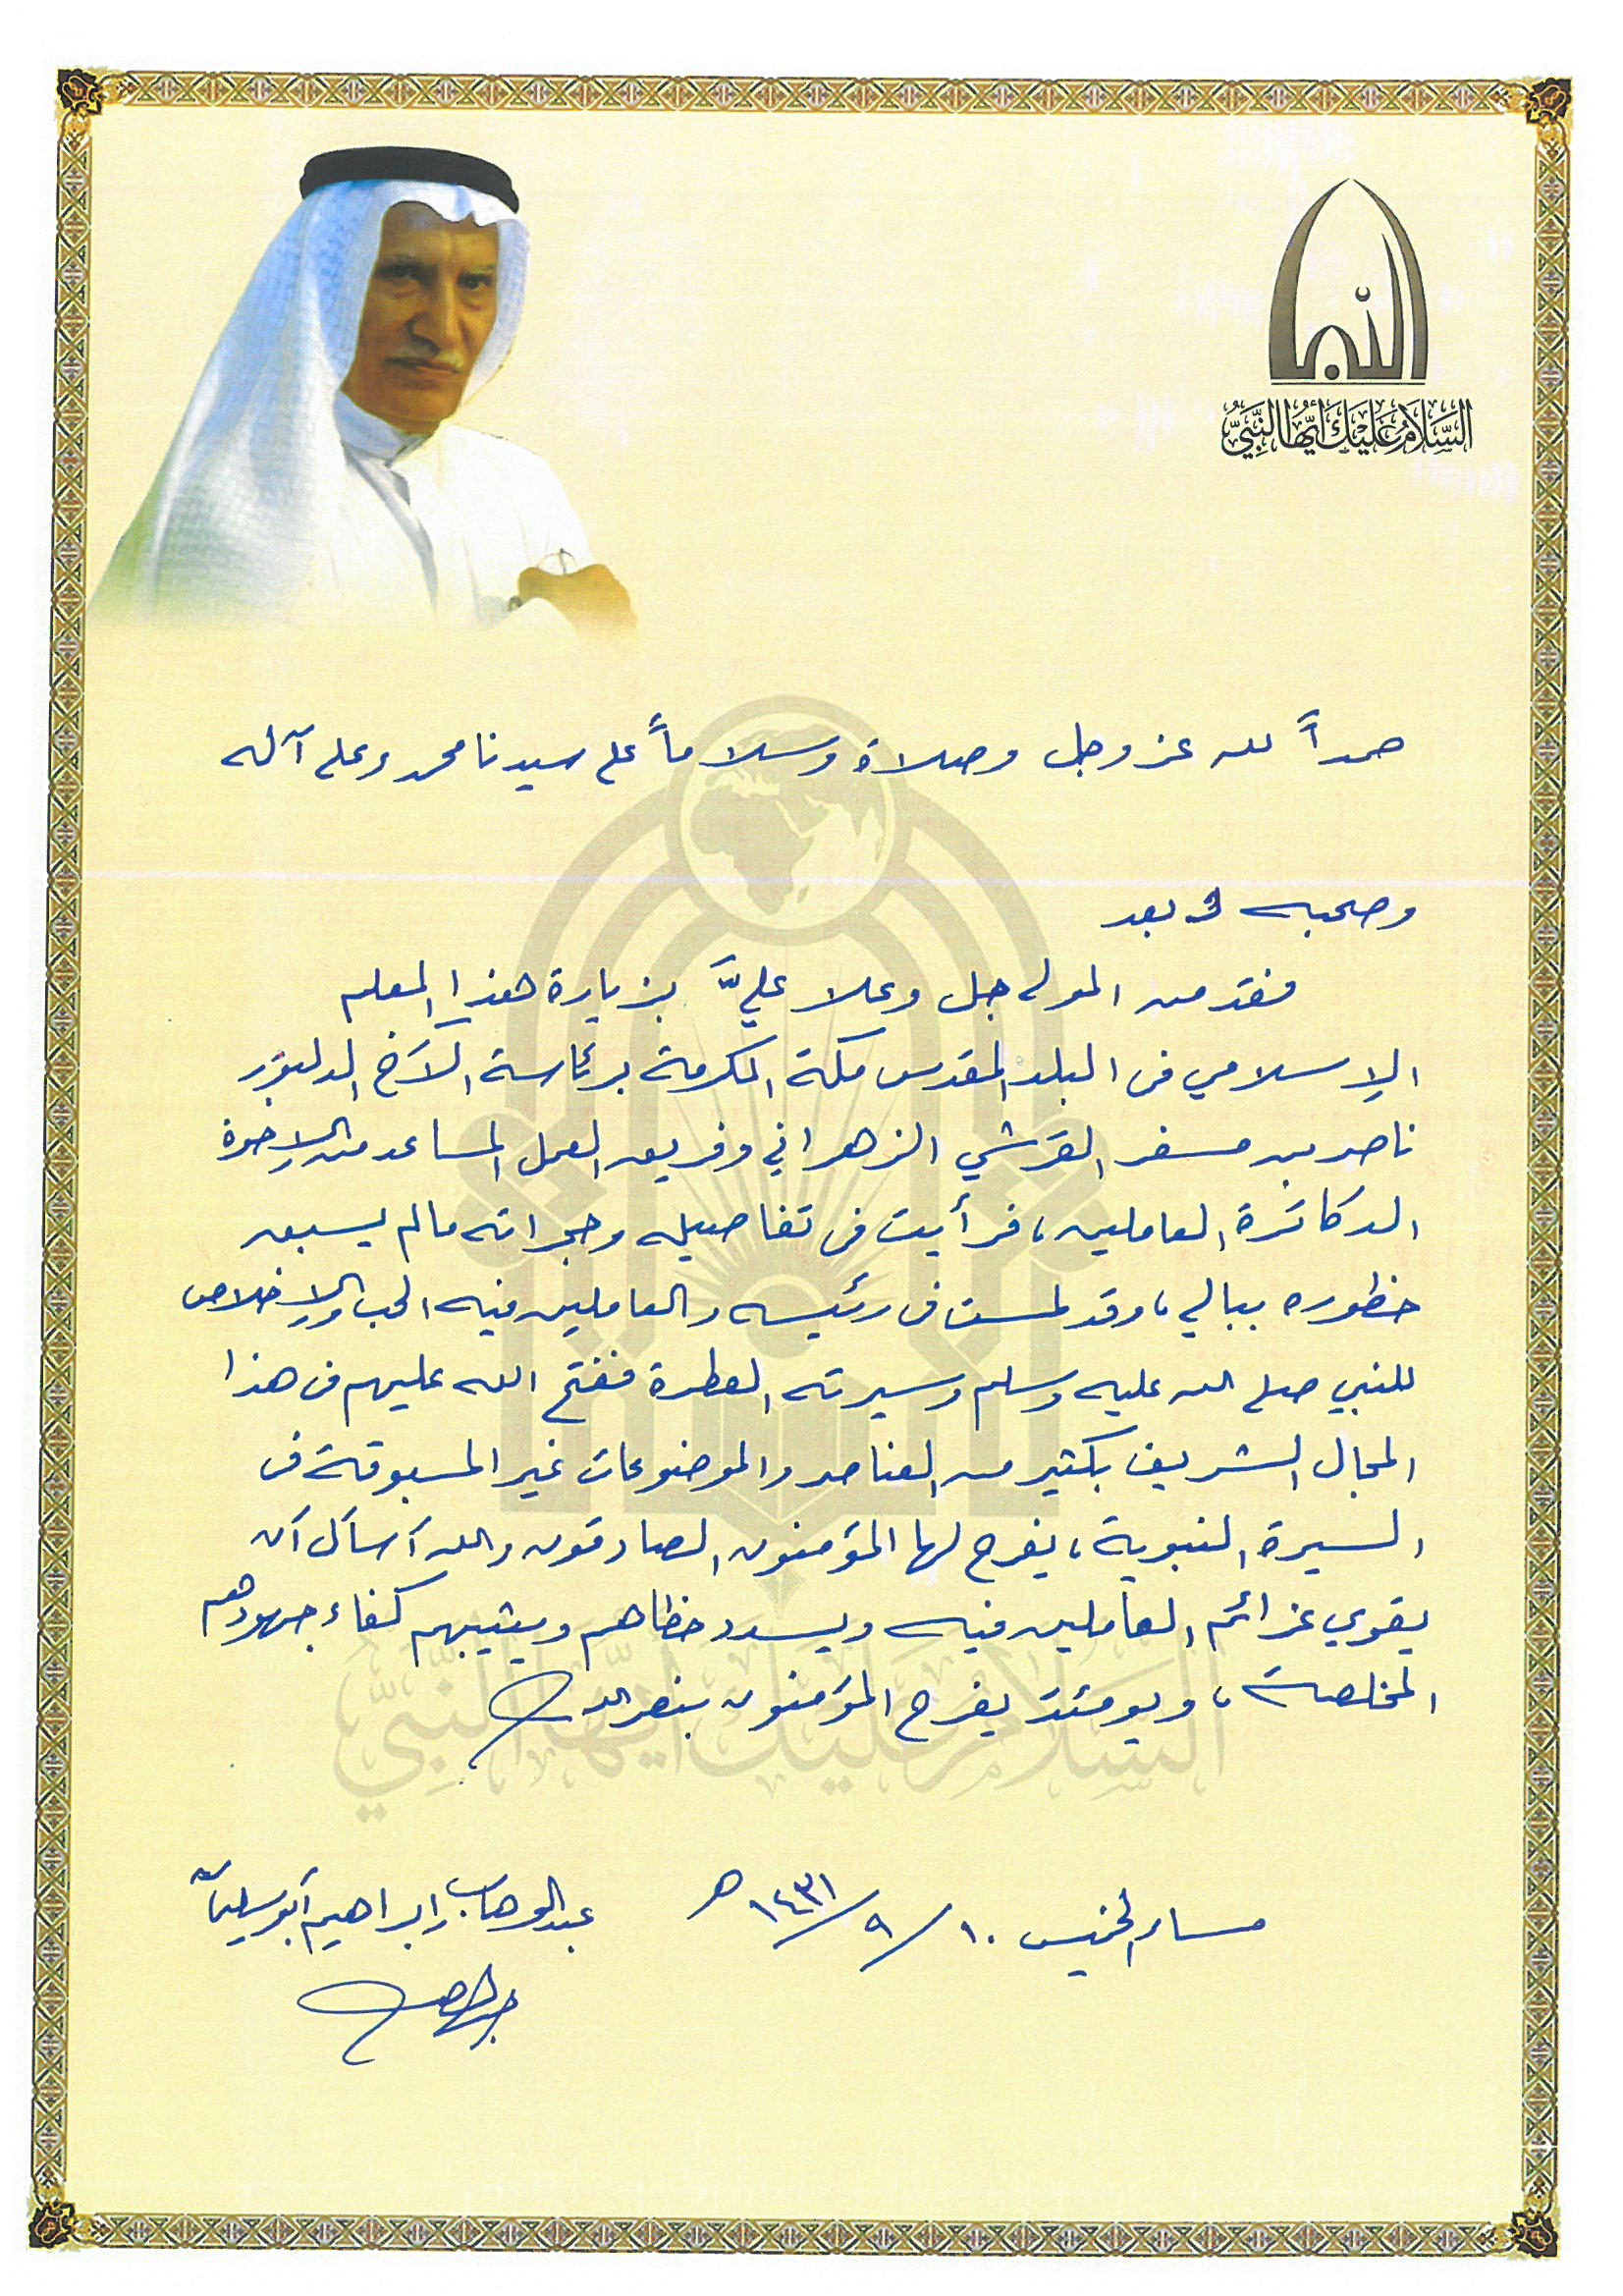 السَّلَامُ عَلَيْكَ أَيُّهَا النَّبِيُّ
حمداً لله عز وجل وصلاة وسلاماً على سيدنا محمد وعلى آله
وصحبه وبعد
فقد من المولى جل وعلا عليَّ بزيارة هذا المعلم
الإسلامي في البلد المقدس مكة المكرمة برئاسة الأخ الدكتور
ناصر بن مسفر القرشي الزهراني وفريق العمل المساعد من الإخوة
الدكاترة العاملين، فرأيت في تفاصيله وحجراته مالم يسبق
خطوره ببالي، وقد لمست في رئيسه والعاملين فيه الحب والإخلاص
للنبي صلى الله عليه وسلم وسيرته العطرة ففتح الله عليهم في هذا
المجال الشريف بكثير من العناصر والموضوعات غير المسبوقة في
السيرة النبوية، يفرح لها المؤمنون الصادقون والله أسأل أن
يقوي عزائم العاملين فيه ويسدد خطاهم ويثيبهم كفاء جهودهم
المخلصة، ويومئذ يفرح المؤمنون بنصر الله
مساء الخميس ١٠/٩/١٤٣١ هـ
عبدالوهاب إبراهيم أبوسليمان
السلام عليك أيها النبي